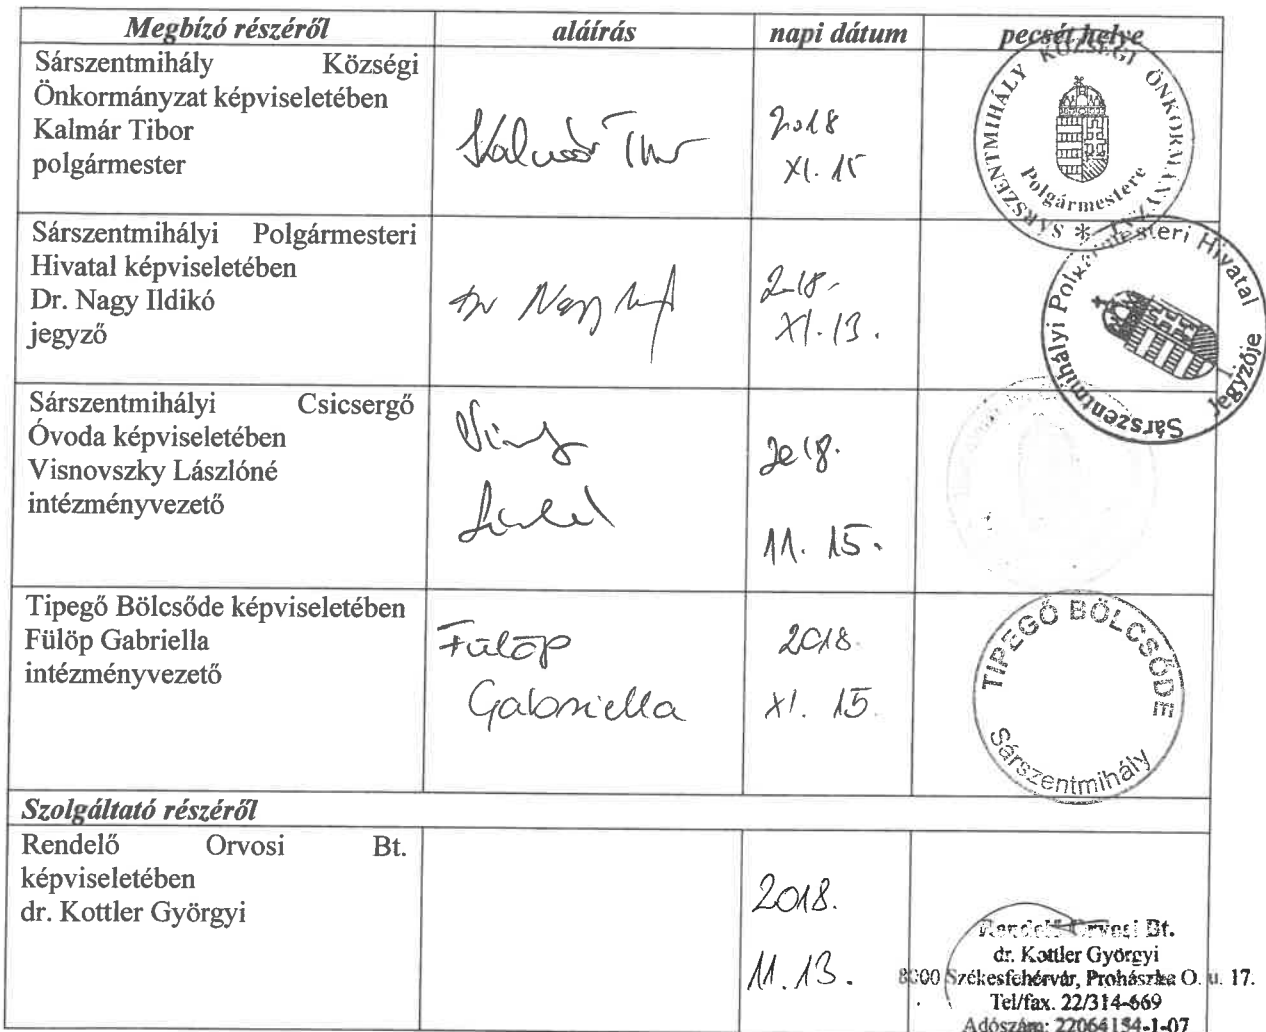 Megbízó részéről aláírás napi dátum pecsét helye
Sárszentmihály Községi
Önkormányzat képviseletében
Kalmár Tibor
polgármester
Kalmár Tibor
2018
XI. 15
SÁRSZENTMIHÁLY KÖZSÉGI ÖNKORMÁNYZAT *
Polgármestere
Sárszentmihályi Polgármesteri
Hivatal képviseletében
Dr. Nagy Ildikó
jegyző
Dr Nagy
2018.
XI. 13.
Sárszentmihályi Polgármesteri Hivatal
Jegyzője
Sárszentmihályi Csicsergő
Óvoda képviseletében
Visnovszky Lászlóné
intézményvezető
2018.
11. 15.
Tipegő Bölcsőde képviseletében
Fülöp Gabriella
intézményvezető
Fülöp
Gabriella
2018.
XI. 15.
TIPEGŐ BÖLCSŐDE
Sárszentmihály
Szolgáltató részéről
Rendelő Orvosi Bt.
képviseletében
dr. Kottler Györgyi
2018.
11. 13.
Rendelő Orvosi Bt.
dr. Kottler Györgyi
8000 Székesfehérvár, Prohászka O. u. 17.
Tel/fax. 22/314-669
Adószám: 22064184-1-07